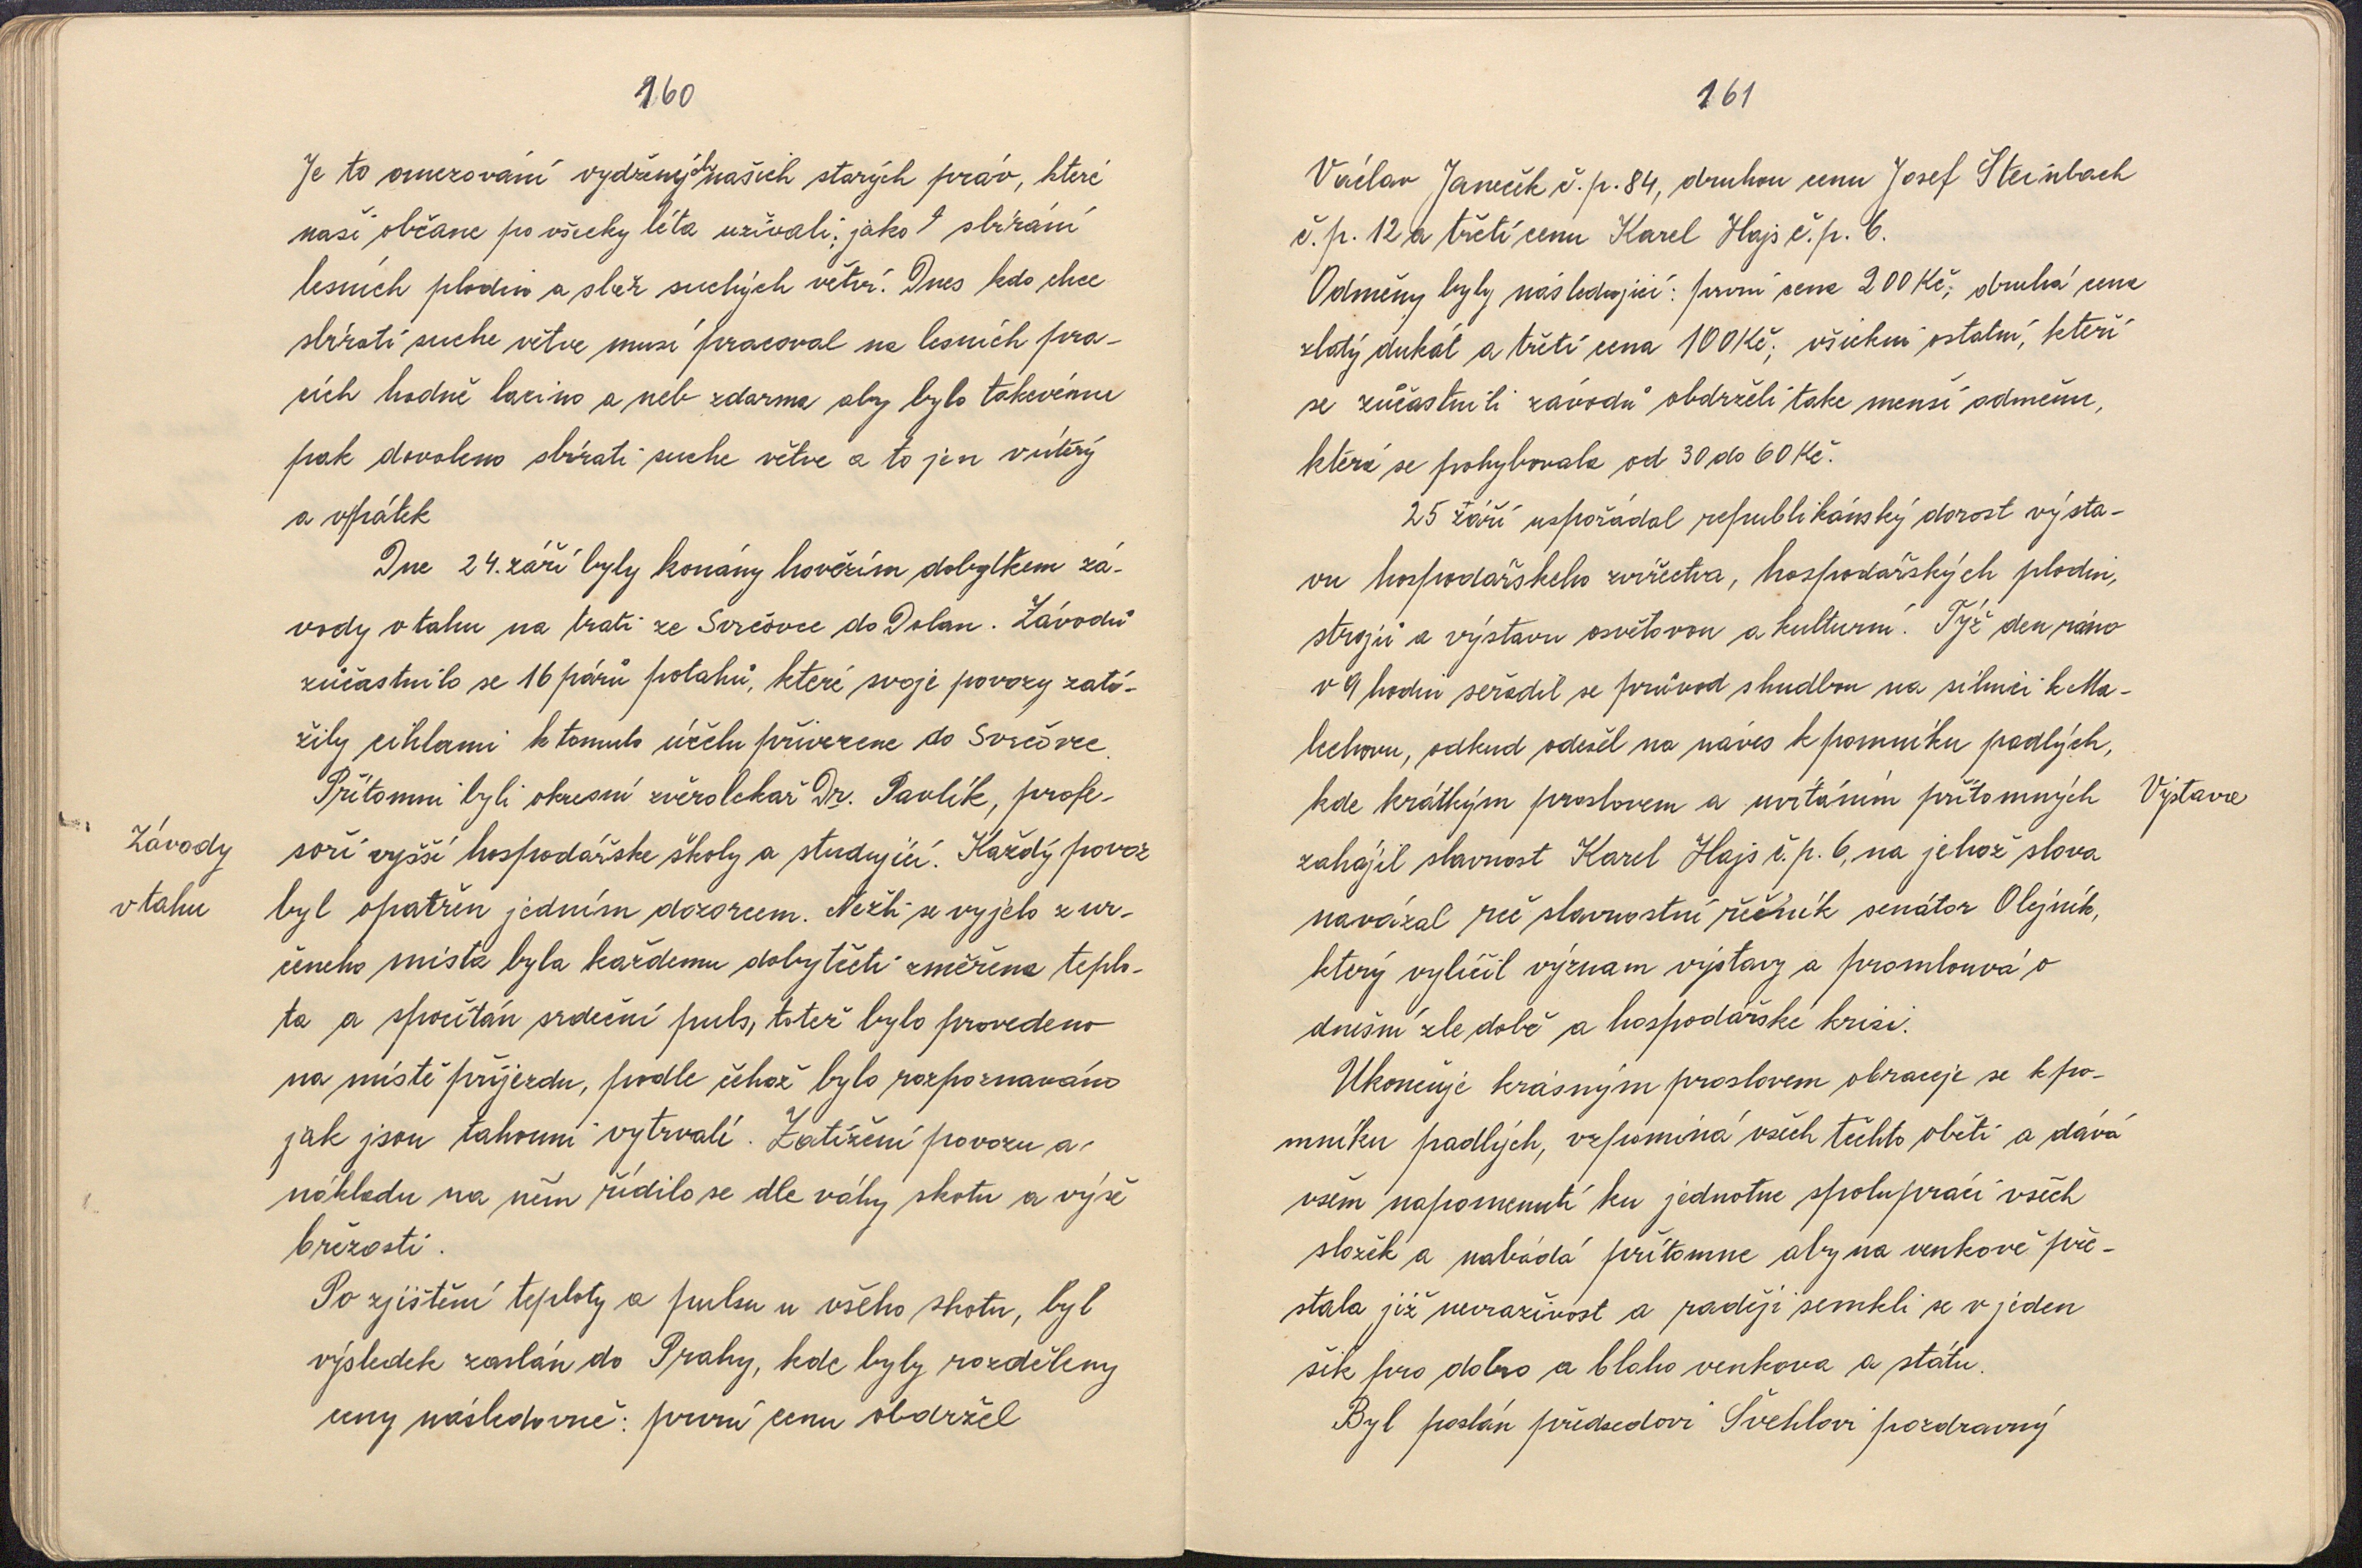 160
Je to omezování vydřených našich starých práv, které
naši občane po všecky léta užívali; jako: sbírání
lesních plodin a sběr suchých větví. Dnes kdo chce
sbírati suche větve musí pracoval na lesních pra-
cích hodně lacino a neb zdarma aby bylo takovému
pak dovoleno sbírati suche větve a to jen v úterý
a v pátek
Dne 24. září byly konány hovězím dobytkem zá-
vody v tahu na trati ze Svrčovce do Dolan. Závodů
zúčastnilo se 16 párů potahů, které svoje povozy zatí-
žily cihlami k tomuto účelu přivezene do Svrčovce.
Přítomni byli okresní zvěrolekař Dr. Pavlík, profe-
Závody
soři vyšší hospodářske školy a studující. Každý povoz
v tahu
byl opatřen jedním dozorcem. Nežli se vyjelo z ur-
čeneho místa byla každemu dobytčeti změřena teplo-
ta a spočítán srdeční puls, totež bylo provedeno
na místě příjezdu, podle čehož bylo rozpoznaváno
jak jsou tahouni vytrvalí. Zatížení povozu a
nákladu na něm řídilo se dle váhy skotu a výše
březosti.
Po zjištění teploty a pulsu u všeho skotu, byl
výsledek zaslán do Prahy, kde byly rozděleny
ceny následovně: první cenu obdržel
161
Václav Janeček č.p. 84, druhou cenu Josef Steinbach
č.p. 12 a třetí cenu Karel Hajs č.p. 6.
Odměny byly následující: první cena 200 Kč; druhá cena
zlatý dukát a třetí cena 100 Kč; všickni ostatní, kteří
se zúčastnili závodů obdrželi take menší odměnu,
která se pohybovala od 30 do 60 Kč.
25 září uspořádal republikánský dorost výsta-
vu hospodařskeho zvířectva, hospodářských plodin,
strojů a výstavu osvětovou a kulturní. Týž den ráno
v 9 hodin seřadil se průvod s hudbou na silnici k Ma-
lechovu, odkud odešel na náves k pomníku padlých,
kde krátkým proslovem a uvítáním přítomných
Výstava
zahájil slavnost Karel Hajs č.p. 6, na jehož slova
navázal reč slavnostní řečník senátor Olejník,
který vylíčil význam výstavy a promlouvá o
dnešní zle době a hospodářské krisi.
Ukončuje krásným proslovem obraceje se k po-
mníku padlých, vzpomíná všech těchto obětí a dává
všem napomenutí ku jednotne spolupráci všech
složek a nabádá přítomne aby na venkově pře-
stala již nevraživost a raději semkli se v jeden
šik pro dobro a blaho venkova a státu.
Byl poslán předsedovi Švehlovi pozdravný